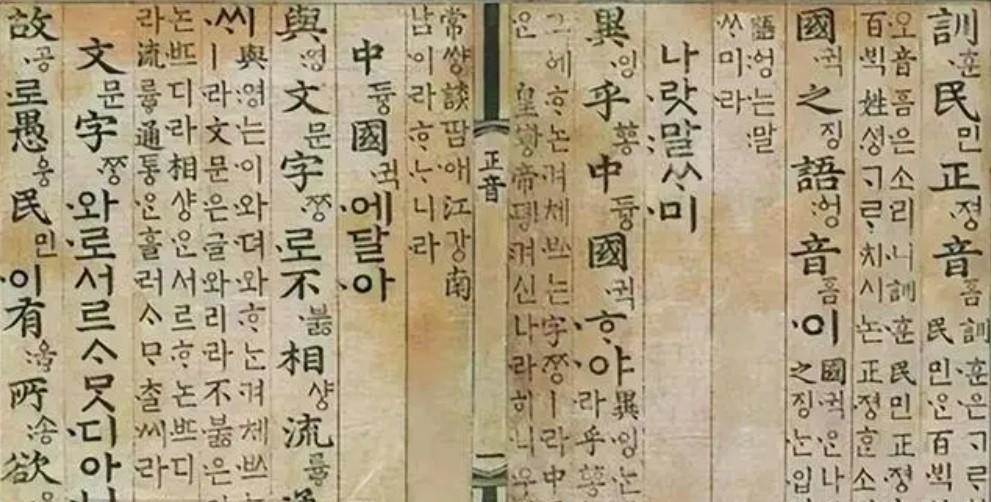 訓훈民민正졍音흠
訓훈은ᄀᆞᄅᆞ
民민ᄋᆞᆫ百ᄇᆡᆨ
오音흠은소리니訓훈民민正졍
百ᄇᆡᆨ姓셩ᄀᆞᄅᆞ치시논正졍훈소
國귁之징語ᅌᅥᆼ音흠이
國귁ᄋᆞᆫ나
之징ᄂᆞᆫ입
語ᅌᅥᆼ는말
ᄊᆞ미라
나랏말ᄊᆞ미
異잉乎ᅘᅩᆼ中듕國귁ᄒᆞ야
異잉ᄂᆞᆫ
라乎ᅘᅩᆼ
그에ᄒᆞ논겨체ᄡᅳ는字ᄍᆞᆼㅣ라中
은皇황帝뎽겨신나라히니우
正音 一
常쌍談땀애江강南
남이라ᄒᆞᄂᆞ니라
中듕國귁에달아
與영文문字ᄍᆞᆼ로不부ᇙ相샹流류ᇢ通
與영는이와뎌와ᄒᆞᄂᆞᆫ겨체ᄡᅳ
ㅣ라文문은글와리라不부ᇙ은
논ᄠᅳ디라相샹ᄋᆞᆫ서르ᄒᆞ논ᄠᅳ디
라流류ᇢ通통ᄋᆞᆫ흘러ᄉᆞᄆᆞᄎᆞᆯ씨라
文문字ᄍᆞᆼ와로서르ᄉᆞᄆᆞᆺ디아
故공로愚ᅌᅮᆼ民민이有우ᇢ所송欲